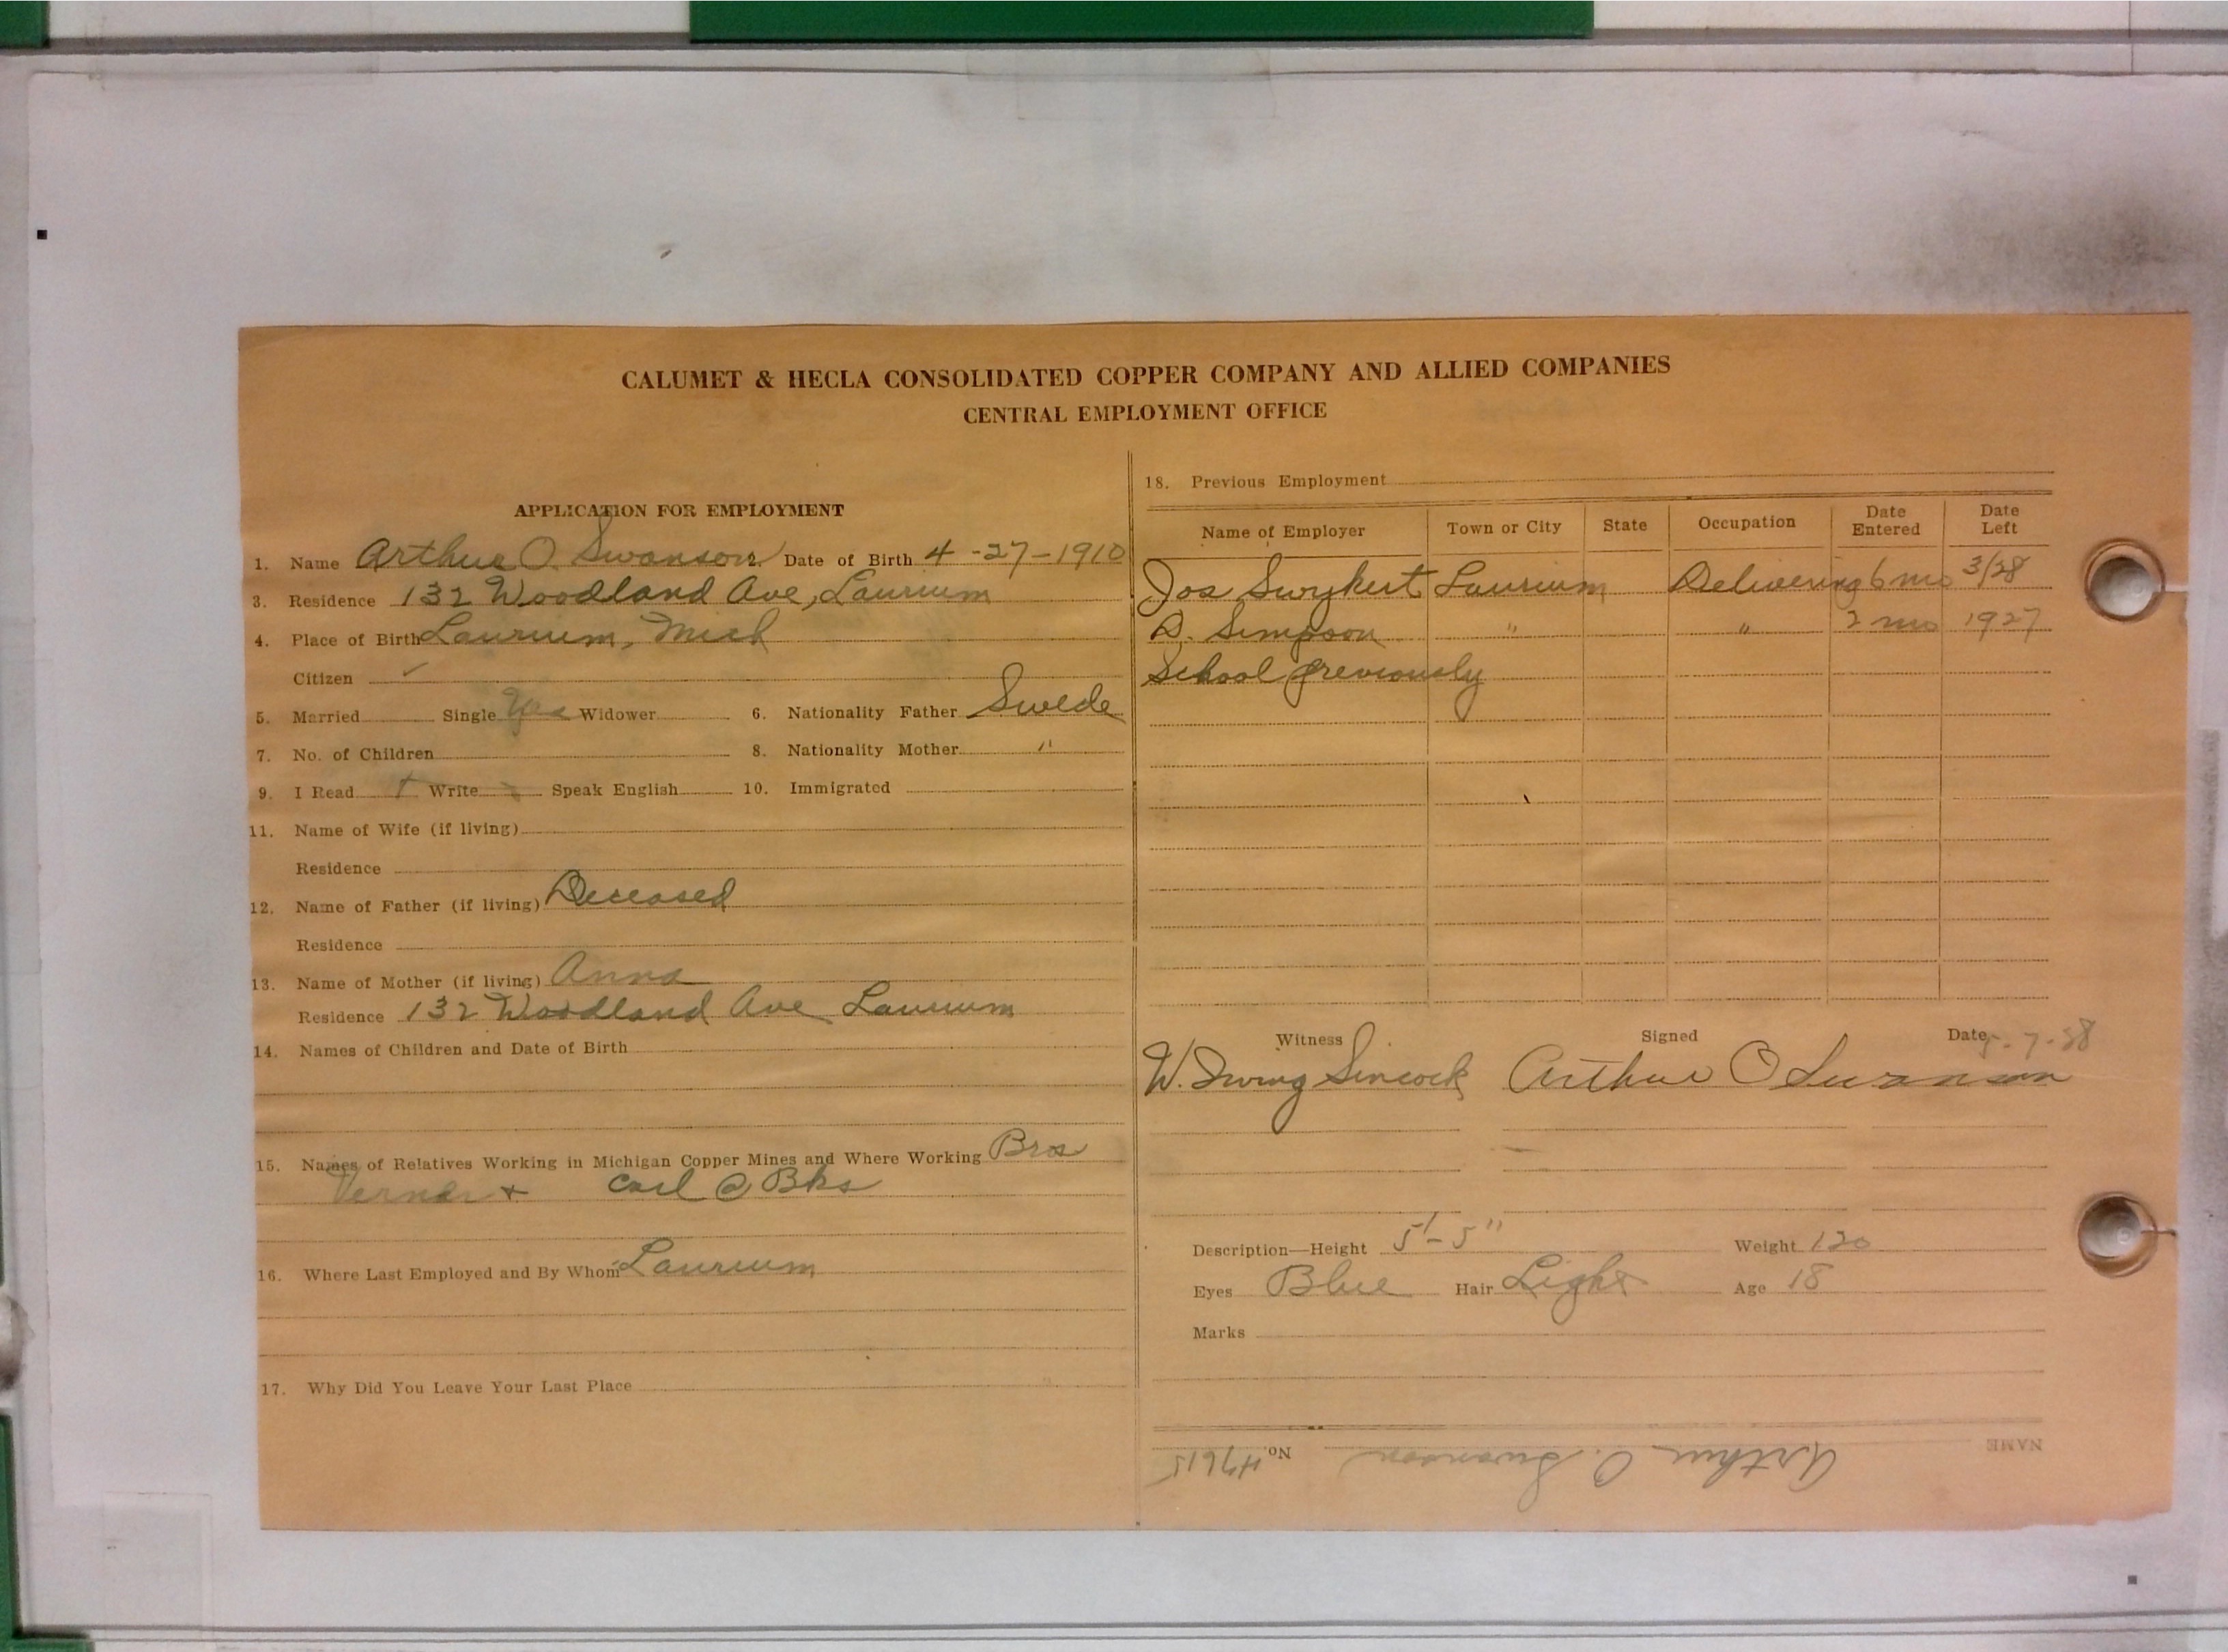 CALUMET & HECLA CONSOLIDATED COPPER COMPANY AND ALLIED COMPANIES
CENTRAL EMPLOYMENT OFFICE
APPLICATION FOR EMPLOYMENT
1. Name Arthur O. Swanson Date of Birth 4-27-1910
3. Residence 132 Woodland Ave, Laurium
4. Place of Birth Laurium, Mich
Citizen ✓
5. Married Single Yes Widower 6. Nationality Father Swede
7. No. of Children 8. Nationality Mother "
9. I Read Write Speak English 10. Immigrated
11. Name of Wife (if living)
Residence
12. Name of Father (if living) Deceased
Residence
13. Name of Mother (if living) Anna
Residence 132 Woodland Ave Laurium
14. Names of Children and Date of Birth
15. Names of Relatives Working in Michigan Copper Mines and Where Working Bros
Verner + Carl @ Bks
16. Where Last Employed and By Whom Laurium
17. Why Did You Leave Your Last Place
18. Previous Employment
Name of Employer Town or City State Occupation Date Entered Date Left
Jos Swykert Laurium Delivering 6 mo 3/28
D. Simpson " " 2 mo 1927
School previously
Witness Signed Date 5-7-28
W. Irving Sincock Arthur O Swanson
Description—Height 5'-5" Weight 120
Eyes Blue Hair Light Age 18
Marks
NAME Arthur O. Swanson No. 47615